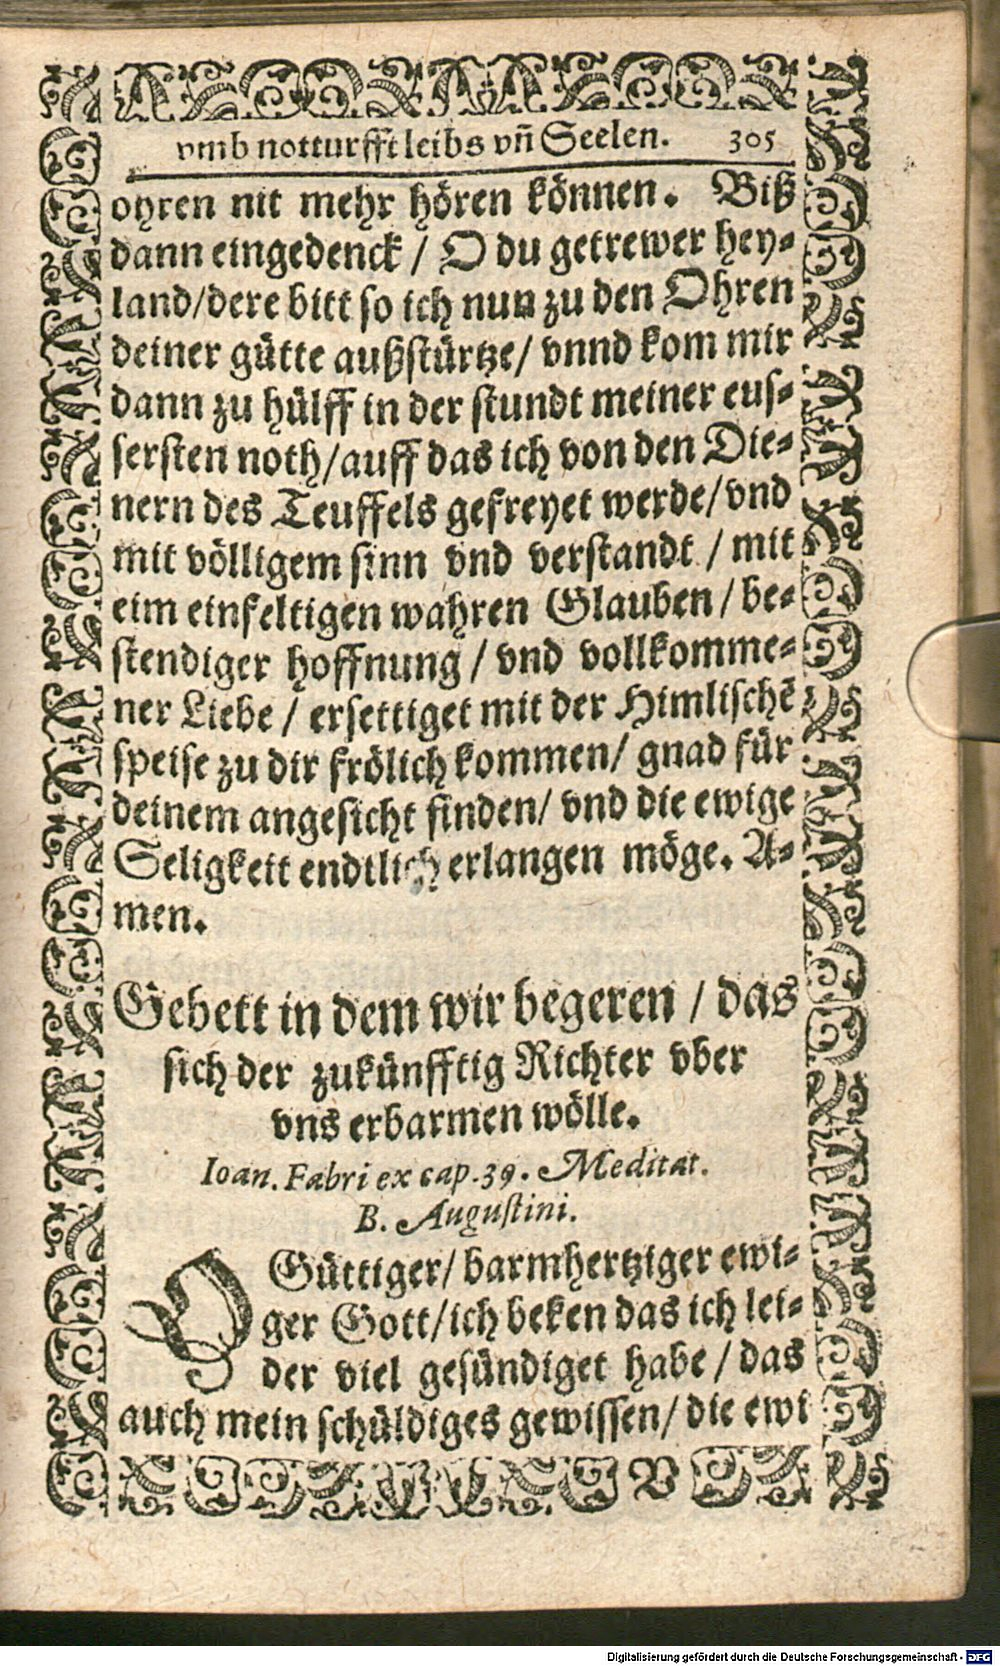 vmb notturfft leibs vñ Seelen. 305
ohren nit mehr hören können. Biß
dann eingedenck / O du getrewer hey-
land/dere bitt so ich nun zu den Ohren
deiner gütte außstürtze/ vnnd kom mir
dann zu hülff in der stundt meiner eus-
sersten noth/auff das ich von den Die-
nern des Teuffels gefreyet werde/vnd
mit völligem sinn vnd verstandt / mit
eim einfeltigen wahren Glauben / be-
stendiger hoffnung / vnd vollkomme-
ner Liebe / ersettiget mit der Himlischē
speise zu dir frölich kommen/ gnad für
deinem angesicht finden/ vnd die ewige
Seligkeit endtlich erlangen möge. A-
men.
Gebett in dem wir begeren / das
sich der zukünfftig Richter vber
vns erbarmen wölle.
Ioan. Fabri ex cap. 39. Meditat.
B. Augustini.
O Güttiger/ barmhertziger ewi-
ger Gott/ich beken das ich lei-
der viel gesündiget habe / das
auch mein schüldiges gewissen/ die ewi
V
Digitalisierung gefördert durch die Deutsche Forschungsgemeinschaft - DFG